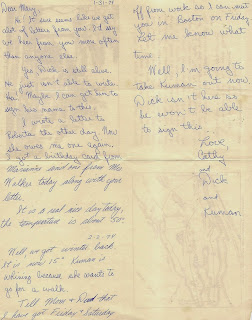 1-31-74
Dear Mary,
Hi. It sure seems like we get
alot of letters from you. I'd say
we hear from you more often
than anyone else.
Yes Dick is still alive.
He just isn't able to write.
Ha! Maybe I can get him to
sign his name to this.
I wrote a letter to
Roberta the other day. Now
she owes me one again.
I got a birthday card from
Marianne and one from Mrs
Walker today along with your
letter.
It is a real nice day today,
the temperature is about 50°
2-2-74
Well, we got winter back.
It is now 15° Kuman is
whining because she wants to
go for a walk.
Tell Mom & Dad that
I have got Friday & Saturday
off from work so I can meet
you in Boston on Friday
Let me know what
time.
Well, I'm going to
take Kuman out now
Dick isn't here so
he won't be able
to sign this.
Love,
Cathy
and
Dick
and
Kuman